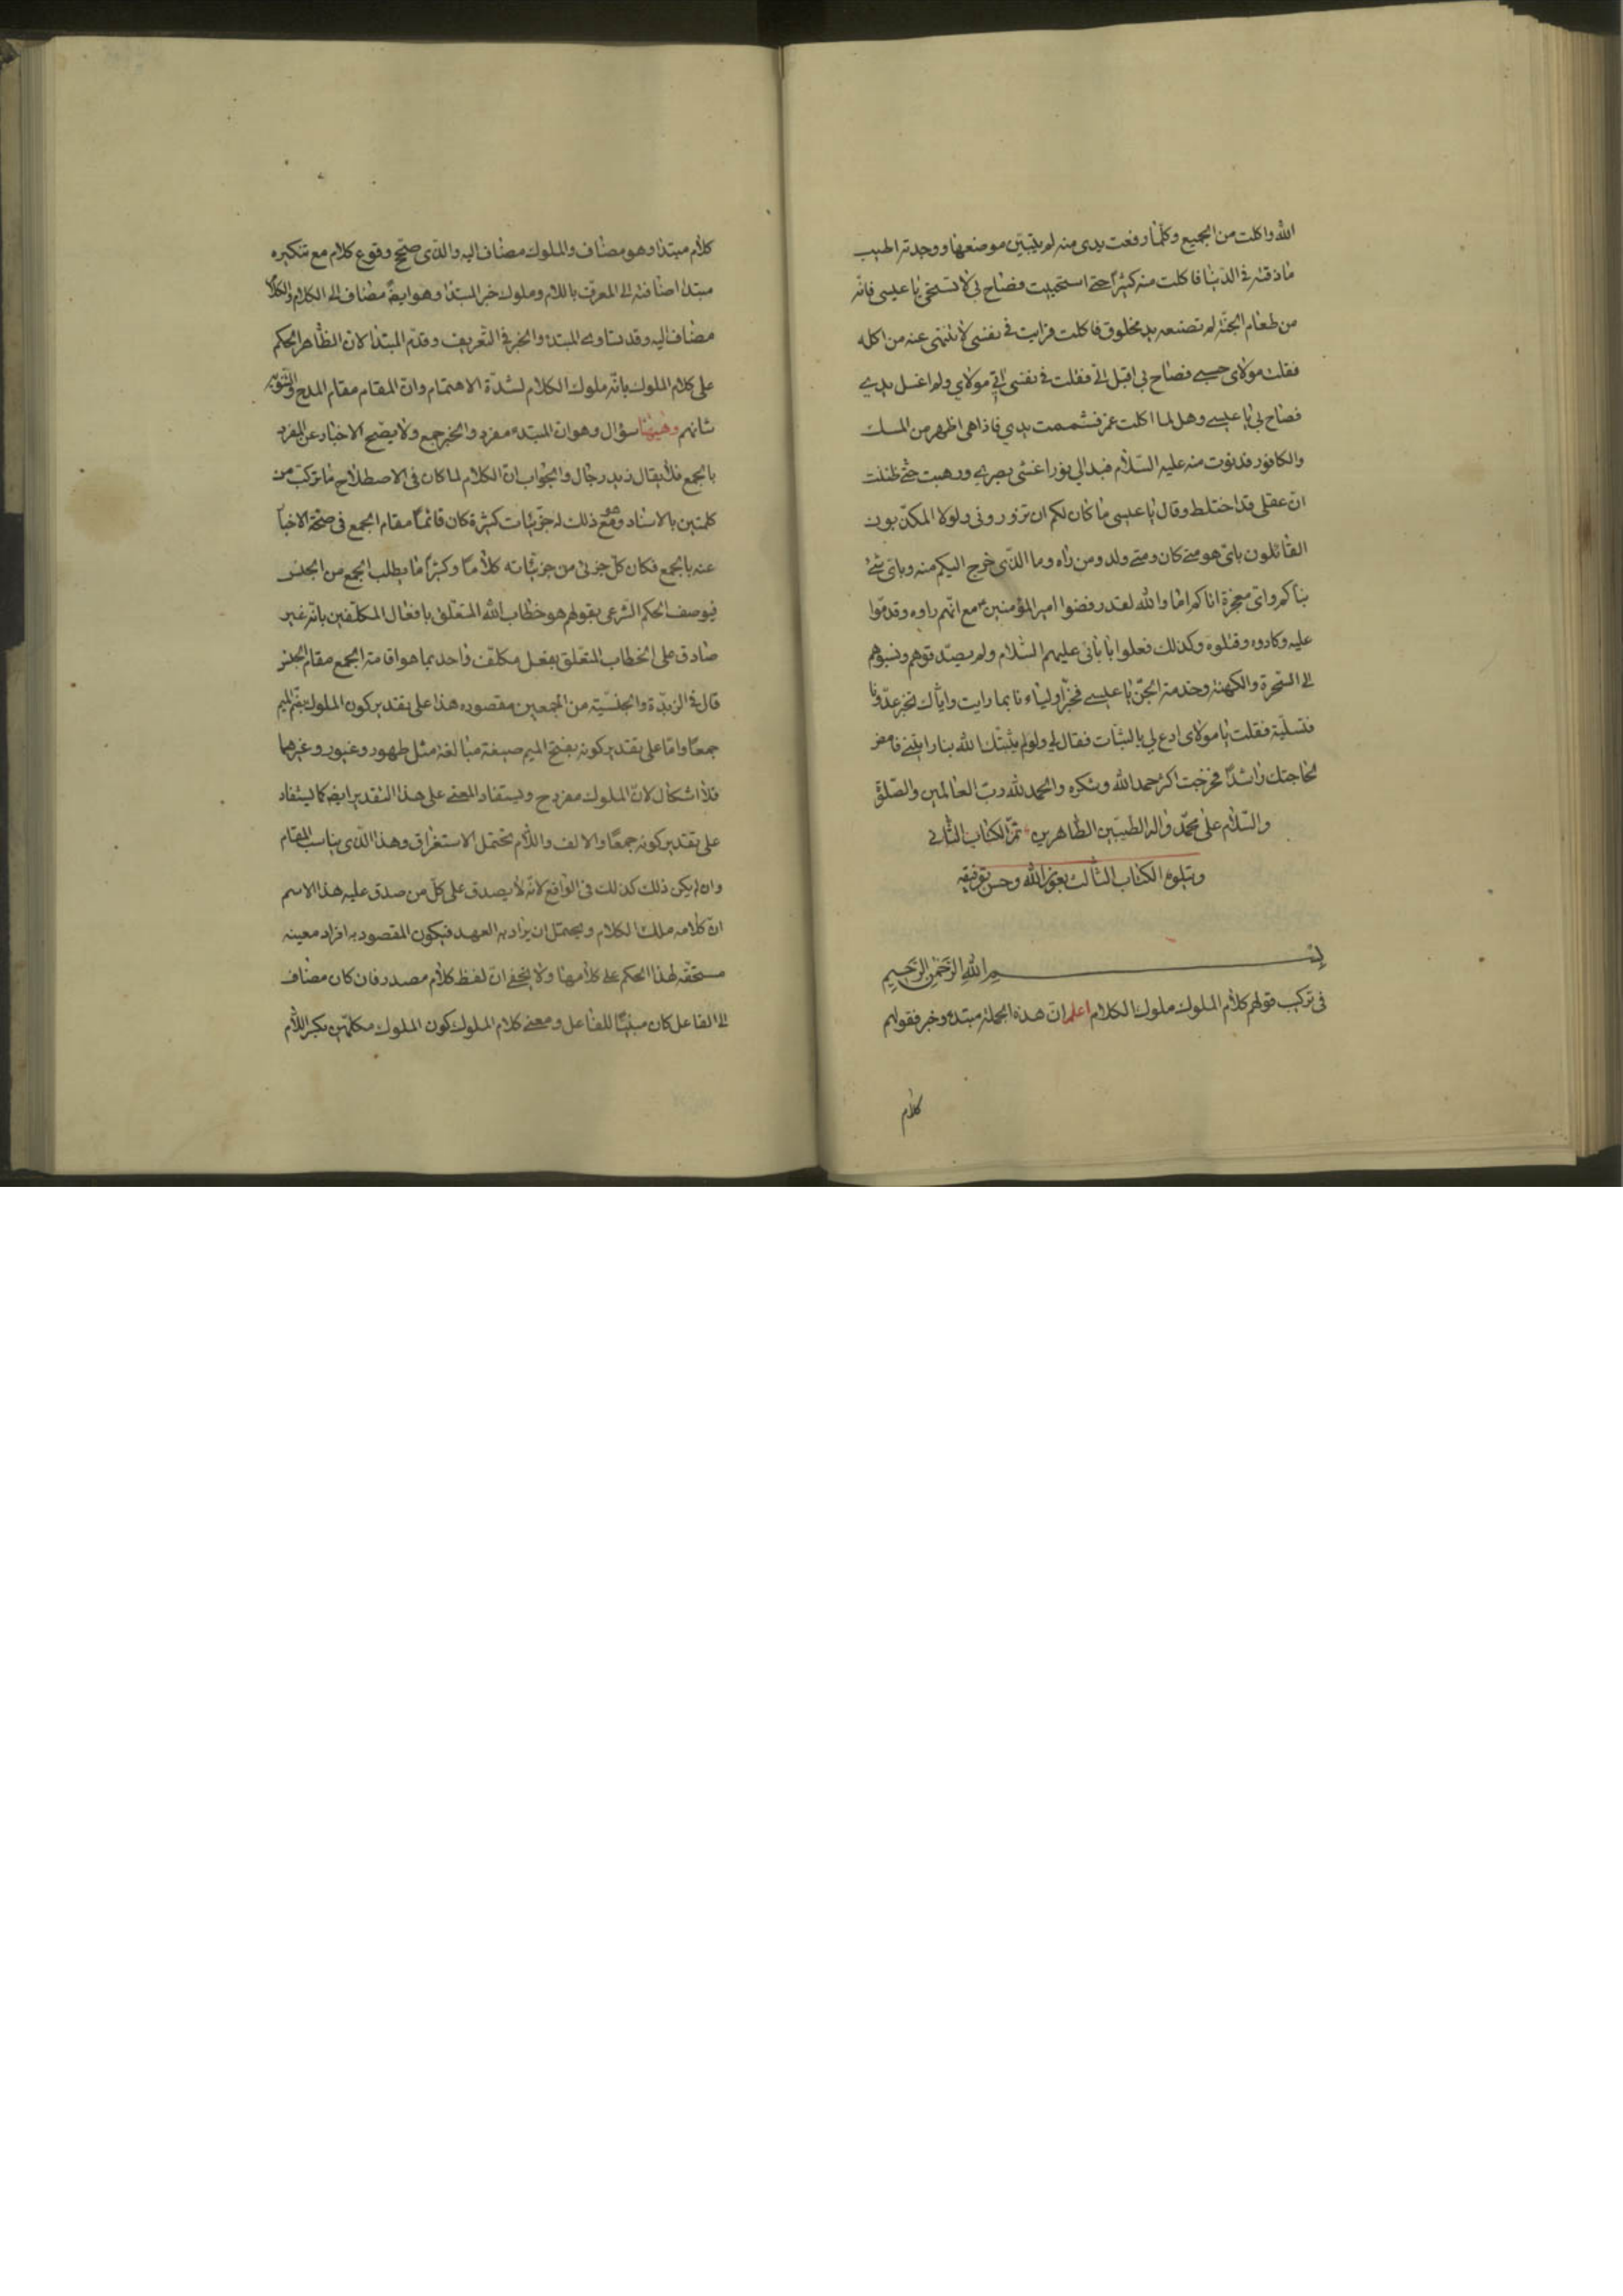 الله واكلت من الجميع وكلّما رفعت يدى منه لم يتبيّن موضعها ووجدته اطيب
ما ذقته فى الدّنيا فاكلت منه كثيرًا حتى استحييت فصاح بى لا تستحى يا عيسى فانّه
من طعام الجنّة لم تصنعه يد مخلوق فاكلت فرايت فى نفسى لا تنتهى عنه من اكله
فقلت مولاى حسبى فصاح بى اقبل الىّ فقلت فى نفسى اٰتى مولاي ولم اغسل يدي
فصاح بى يا عيسى وهل لما اكلت غمز فشممت يدي فاذا هى اظهر من المسك
والكافور فدنوت منه عليه السّلام فبدا لي نور اغشى بصرى ورهبت حتّى ظننت
انّ عقلى قد اختلط وقال يا عيسى ما كان لكم ان تزورونى ولولا المكذّبون
القائلون باىّ هو متى كان ومتى ولد ومن راٰه وما الذّى خرج اليكم منه وباىّ شئ
نبأكم واىّ معجزة اتاكم اما والله لقد رفضوا امير المؤمنينؑ مع انّهم راوه وقدّموا
عليه وكادوه وقتلوه وكذلك فعلوا باٰبائى عليهم السّلام ولم يصدّقوهم ونسبوهم
الى السّحرة والكهنة وخدمة الجنّ يا عيسى فخبّر اولياءنا بما رايت وايّاك تخبر عدّونا
فتسليه فقلت يا مولاى ادع لي بالثبات فقال لى ولو لم يثبّتك الله ما رايتنى فامض
لحاجتك راشدًا فخرجت اكثر حمد الله وشكره والحمد لله ربّ العالمين والصّلوة
والسّلام على محمّد واٰله الطيبّين الطّاهرين تمّ الكتاب الثّانى
ويتلوه الكتاب الثّالث بعون الله وحسن توفيقه
بسم الله الرّحمن الرّحيم
فى تركيب قولهم كلام الملوك ملوك الكلام اعلم انّ هذه الجملة مبتدء وخبر فقولهم
كلام
كلام مبتدا وهو مضاف والملوك مضاف اليه والذّى صحّح وقوع كلام مع تنكيره
مبتدا اضافته الى المعرّف باللام وملوك خبر المبتدا وهو ايضًا مضاف الى الكلام والكلام
مضاف اليه وقد تساوى المبتدء والخبر فى التّعريف وقدّم المبتدا لانّ الظّاهر الحكم
على كلام الملوك بانّه ملوك الكلام لشدّة الاهتمام وانّ المقام مقام المدح والتّنويه
شانهم وهيهنا سؤال وهو انّ المبتدء مفرد والخبر جمع ولا يصّح الاخبار عن المفرد
بالجمع فلا يقال زيد رجال والجواب انّ الكلام لما كان فى الاصطلاح ما تركّب من
كلمتين بالاسناد وهو مع ذلك له جزئيات كثيرة كان قائمًا مقام الجمع فى صحّة الاخبار
عنه بالجمع فكان كلّ جزئى من جزئيّاته كلامًا وكثيرًا ما يطلب الجمع من الجنس
فيوصف الحكم الشّرعى بقولهم هو خطاب الله المتعلّق بافعال المكلّفين بانّه غير
صادق على الخطاب المتعّلق بفعل مكلّف واحد بما هو اقامة الجمع مقام الجنس
قال فى الزبدّة والجنسيّة من الجمعين مقصوده هذا على تقدير كون الملوك بضّم الميم
جمعًا وامّا على تقدير كونه بفتح الميم صيغة مبالغة مثل طهور وغيور وغيرهما
فلا اشكال لانّ الملوك مفرد ح ويستفاد المعنى على هذا التقدير ايضًا كما يستفاد
على تقدير كونه جمعًا والالف واللّام تحتمل الاستغراق وهذا الذّى يناسب المقام
وان لم يكن ذلك كذلك فى الواقع لانّه لا يصدق على كلّ من صدق عليه هذا الاسم
انّ كلامه ملك الكلام ويحتمل ان يراد به العهد فيكون المقصود به افراد معينه
مستحقّه لهذا الحكم على كلامها ولا يخفى انّ لفظ كلام مصدر فان كان مضاف
الى الفاعل كان مبنيًا للفاعل ومعنى كلام الملوك كون الملوك مكلّمين بكسر اللّام